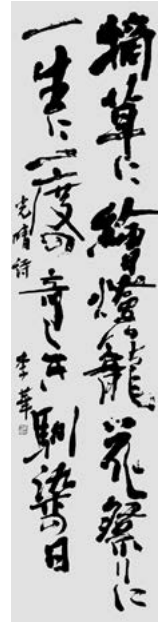 摘草に繪燈籠に花祭りに
一生に一度の奇しき馴染の日
光晴詩 李華